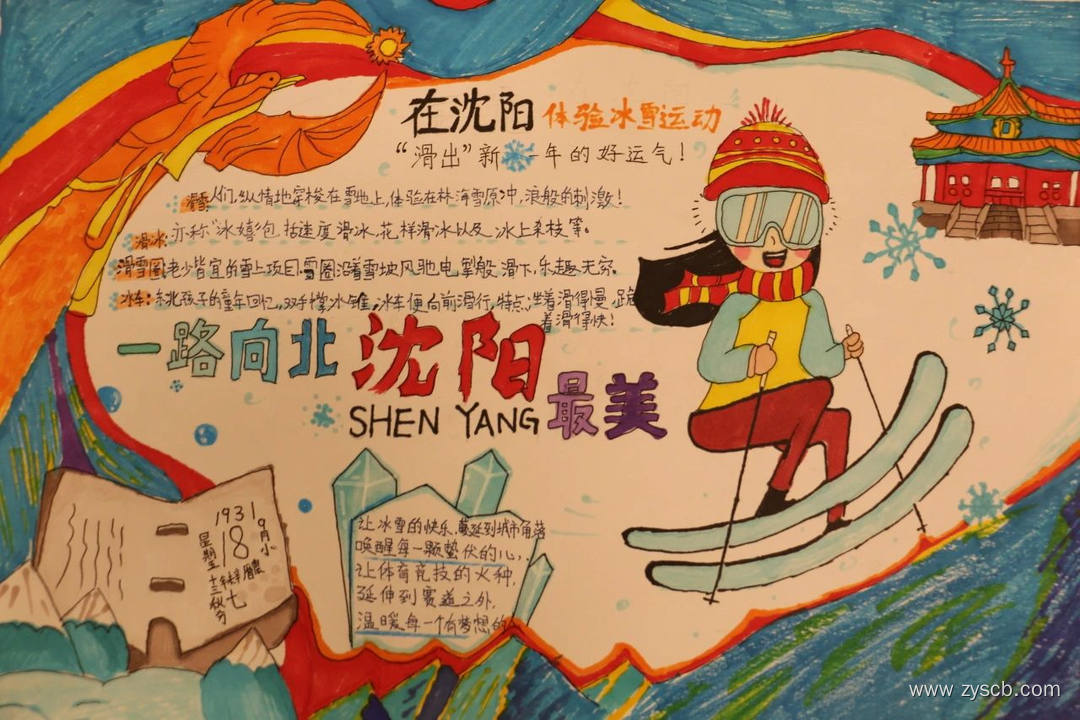 在沈阳体验冰雪运动
“滑出”新一年的好运气！
滑雪：人们纵情地穿梭在雪地上，体验在林海雪原冲浪般的刺激！
滑冰：亦称“冰嬉”包括速度滑冰、花样滑冰以及冰上杂技等。
滑雪圈：老少皆宜的雪上项目，雪圈沿着雪坡风驰电掣般滑下，乐趣无穷。
冰车：东北孩子的童年回忆，双手撑冰锥，冰车便向前滑行，特点：坐着滑得慢，跪
着滑得快！
一路向北沈阳
SHEN YANG 最美
让冰雪的快乐，蔓延到城市角落
唤醒每一颗蛰伏的心，
让体育竞技的火种，
延伸到赛道之外，
温暖每一个有梦想的
1931
9月小
18
星期五
十三秋分
七
www.zyscb.com